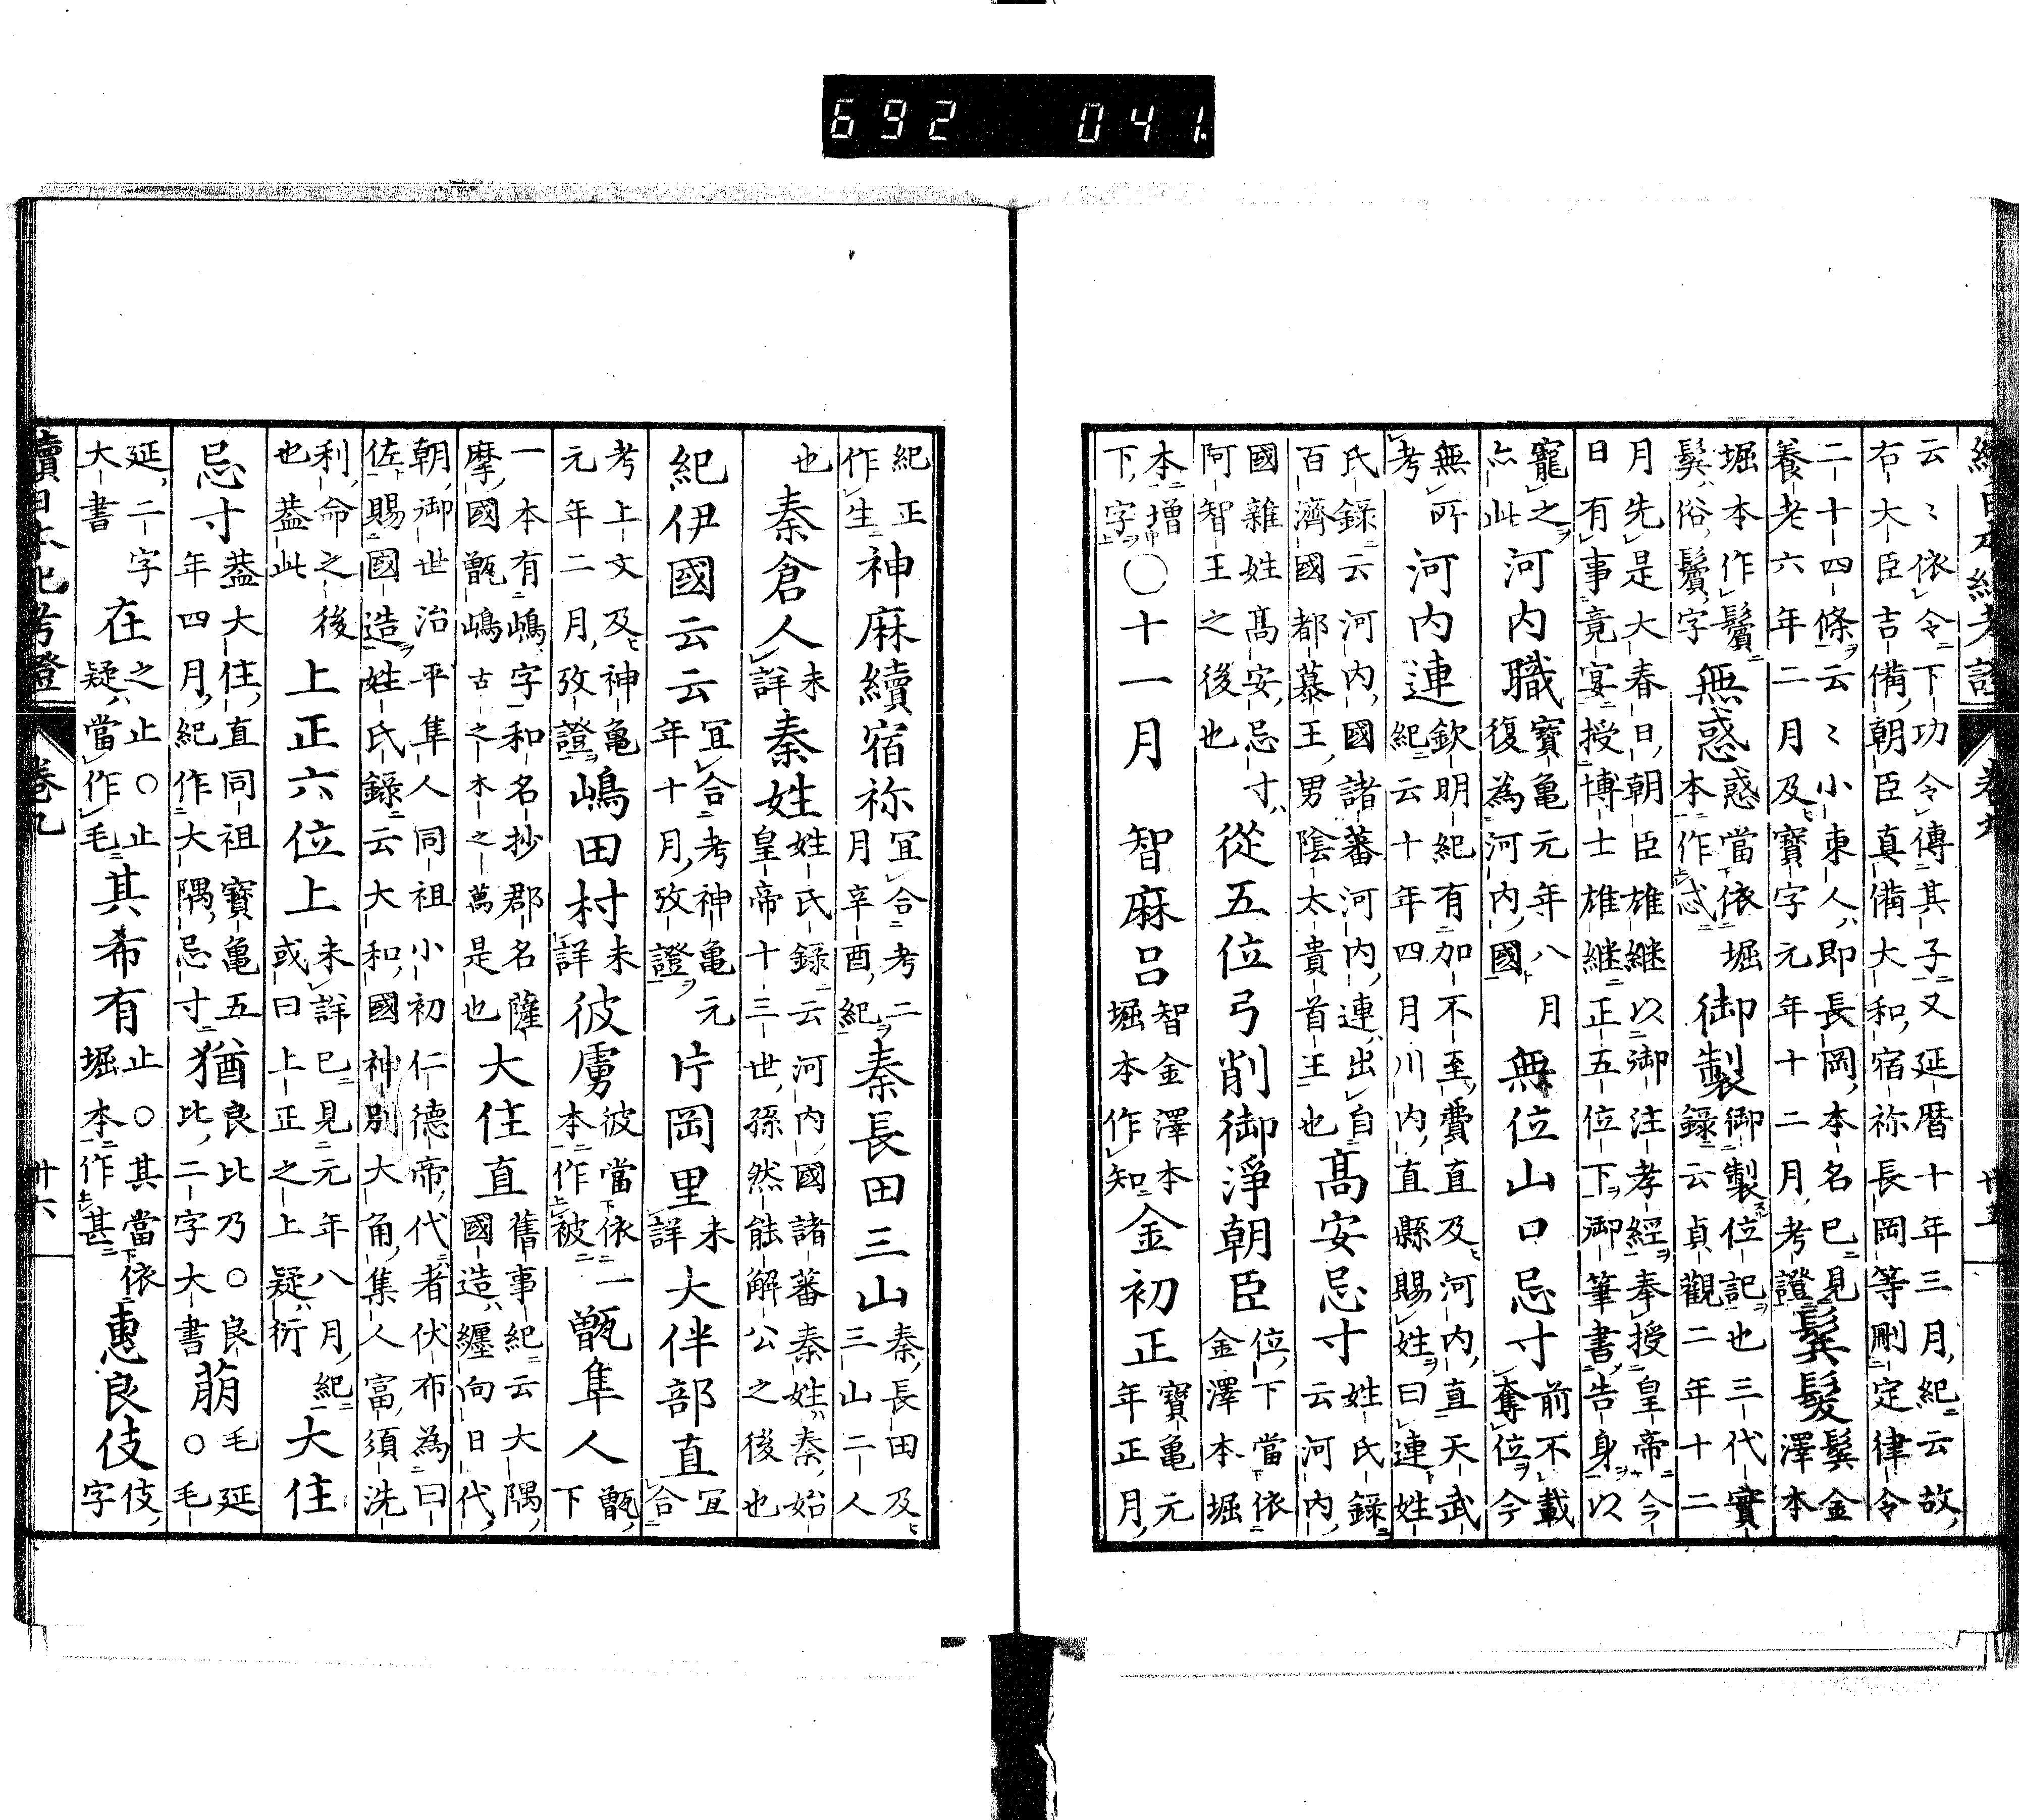 692 041.
續日本紀考證 卷九 廿五
云〻依令下功令傳其子又延暦十年三月紀云故
右大臣吉備朝臣真備大和宿祢長岡等刪定律令
二十四條云〻小東人即長岡本名已見
養老六年二月及寶字元年十二月考證
鬂髮
鬂金澤本
堀本作鬢
鬂俗鬢字
無惑
惑當依堀
本作忒
御製
御製位記也三代實
錄云貞觀二年十二
月先是大春日朝臣雄継以御注孝經奉授皇帝今
日有事竟宴授博士雄継正五位下御筆書告身以
寵之
亦此
河内職
寶亀元年八月
復為河内國
無位山口忌寸
前不載
奪位今
無所
考
河内連
欽明紀有加不至費直及河内直天武
紀云十年四月川内直縣賜姓曰連姓
氏錄云河内國諸蕃河内連出自
百濟國都慕王男陰太貴首王也
高安忌寸
姓氏錄
云河内
國雜姓高安忌寸
阿智王之後也
從五位弓削御淨朝臣
位下當依
金澤本堀
本増
下字
○十一月 智麻呂
智金澤本
堀本作知
金初正
寶亀元
年正月
紀正
作生
神麻續宿祢
宜合考二
月辛酉紀
秦長田三山
秦長田及
三山二人
也
秦倉人
未
詳
秦姓
姓氏錄云河内國諸蕃秦姓秦始
皇帝十三世孫然能解公之後也
紀伊國云云
宜合考神亀元
年十月攷證
片岡里
未
詳
大伴部直
宜
合
考上文及神亀
元年二月攷證
嶋田村
未
詳
彼虜
彼當依一
本作被
甑隼人
甑
下
一本有嶋字和名抄郡名薩
摩國甑嶋古之木之萬是也
大住直
舊事紀云大隅
國造纏向日代
朝御世治平隼人同祖小初仁德帝代者伏布為曰
佐賜國造姓氏錄云大和國神別大角集人富須洗
利命之後
也葢此
上正六位上
未詳已見元年八月紀
或曰上正之上疑衍
大住
忌寸
葢大住直同祖寶亀五
年四月紀作大隅忌寸
猶
良比乃○良
比二字大書
萠
毛延
○毛
延二字
大書
在
之止○止
疑當作毛
其希有
止○其當依
堀本作甚
恵良伎
伎
字
續日本紀考證 卷九 廿六